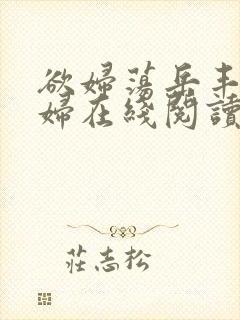 欲婦蕩岳丰
婦在綫閱讀
莊志松